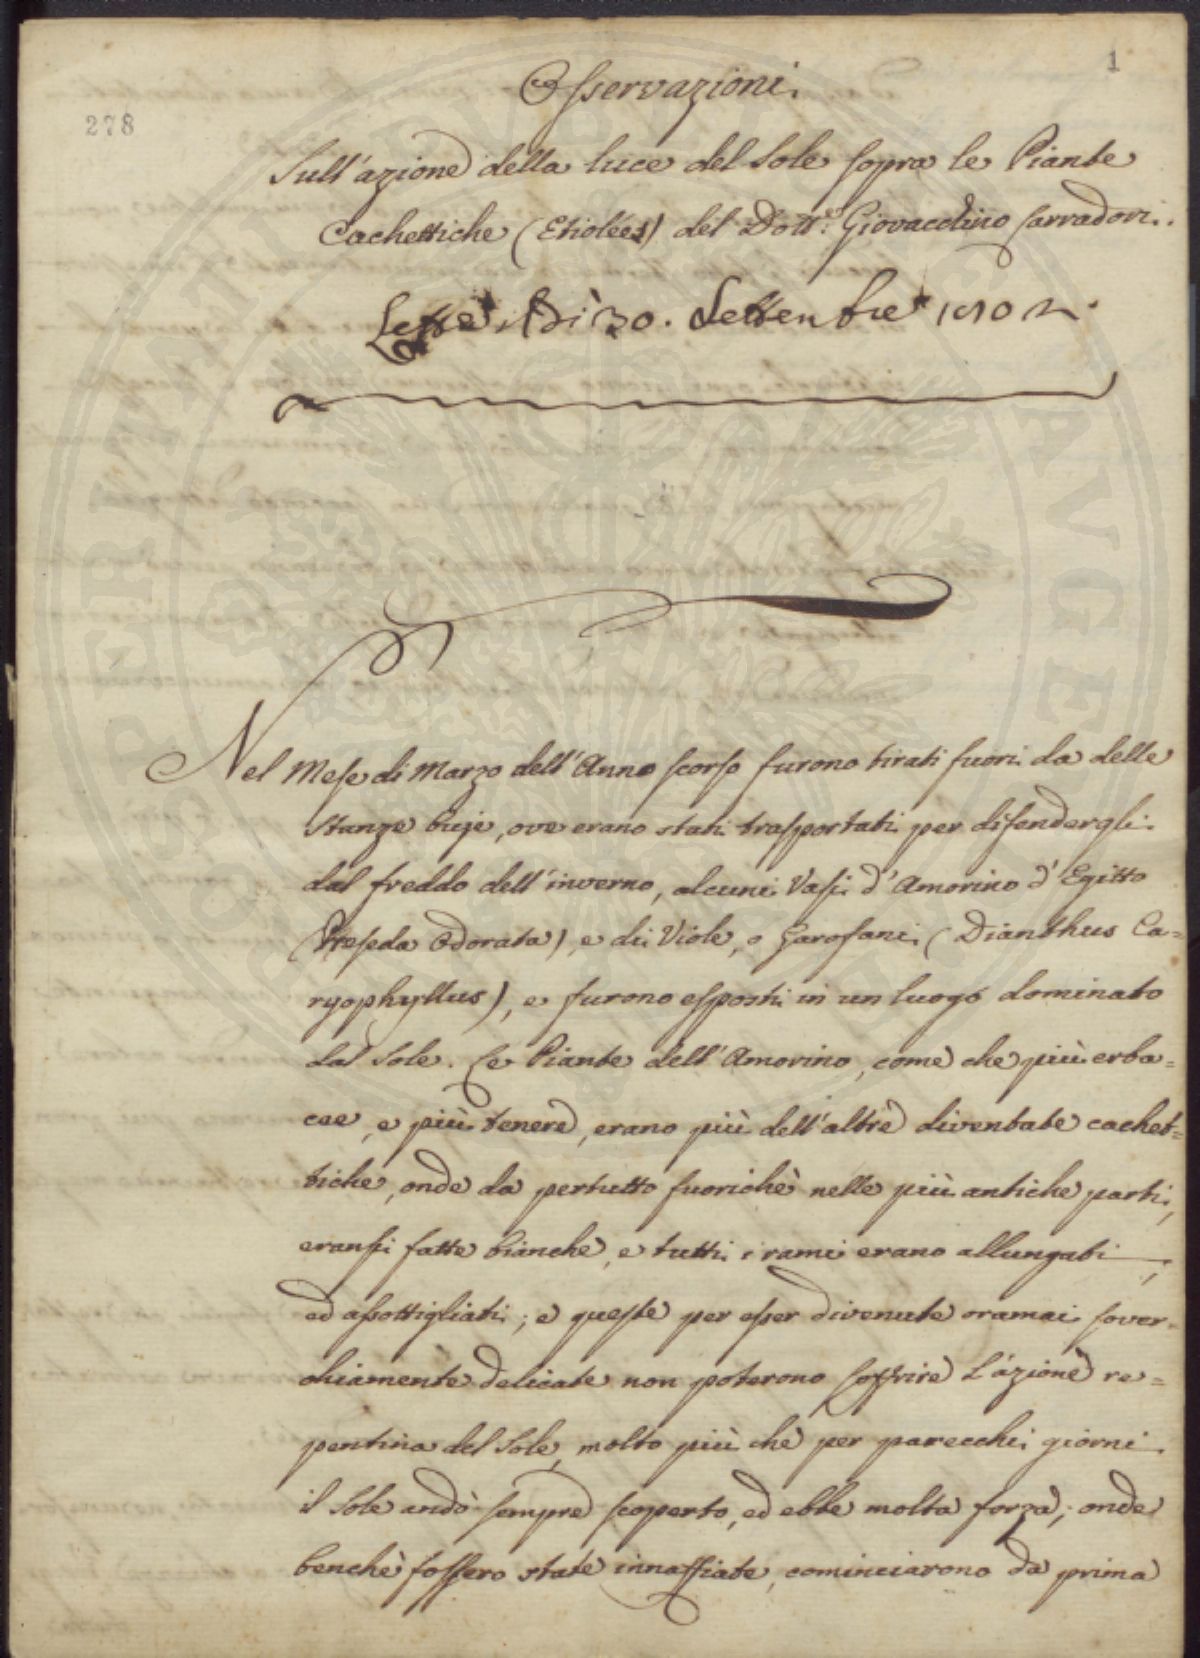 1
278
Osservazioni
Sull'azione della luce del Sole sopra le Piante
Cachettiche (Etiolées) del Dott.e Giovacchino Carradori.
Lette Adì 30. Settembre 1802.
Nel Mese di Marzo dell'Anno scorso furono tirati fuori da delle
Stanze buje, ove erano stati trasportati per difendergli
dal freddo dell'inverno, alcuni Vasi d'Amorino d'Egitto
(Reseda Odorata), e di Viole, o Garofani (Dianthus Ca=
ryophyllus), e furono esposti in un luogo dominato
dal Sole. Le Piante dell'Amorino, come che più erba=
cee, e più tenere, erano più dell'altre diventate cachet=
tiche, onde da pertutto fuorichè nelle più antiche parti,
eransi fatte bianche, e tutti i rami erano allungati,
ed assottigliati; e queste per esser divenute oramai sover=
chiamente delicate non poterono soffrire l'azione re=
pentina del Sole, molto più che per parecchi giorni
il Sole andò sempre scoperto, ed ebbe molta forza; onde
benchè fossero state innaffiate, cominciarono da prima